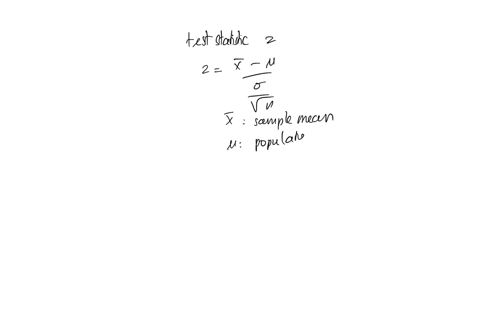 test statistic z
z = x̄ - μ
σ
√n
x̄ : sample mean
μ: populatio